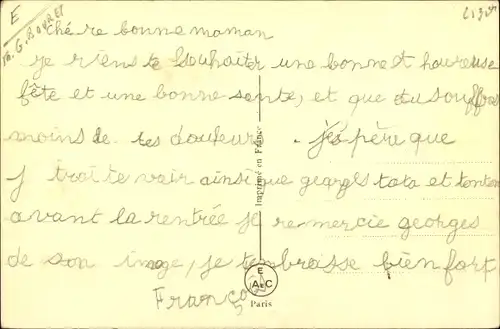 E
Ph. G. BOYRET
ché re bonne maman
je viens te souhaiter une bonne et heureuse
fête et une bonne sante, et que tu souffres
moins de tes douleur. j'espère que
j irai te voir ainsi que georges tata et tonton
avant la rentrée je remercie georges
de son image, je t'embrasse bien fort
Franço
Imprimé en France
E
A C
Paris